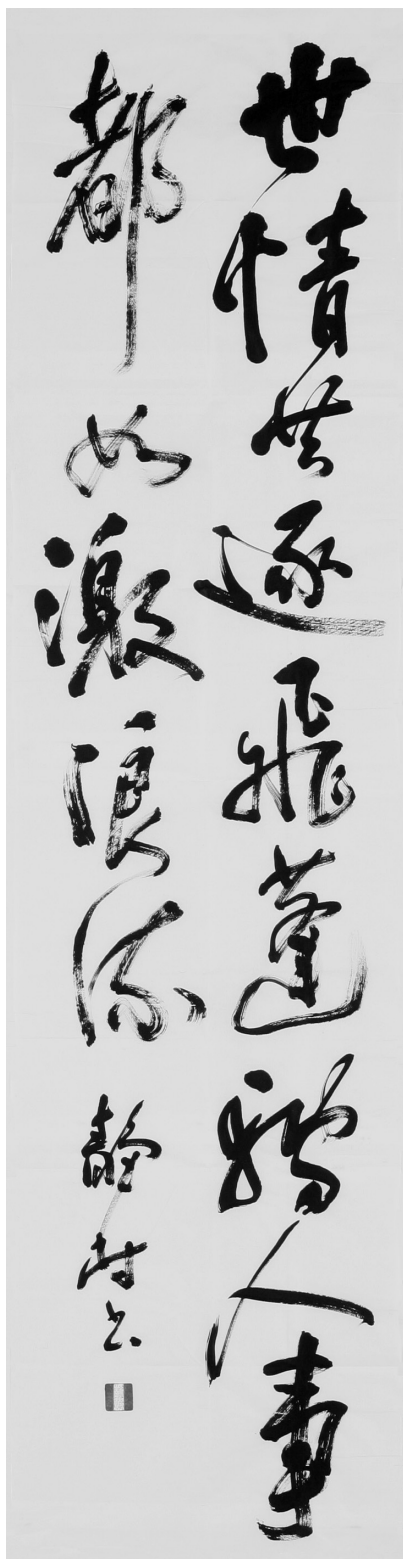 世情共逐飛蓬轉人事
都如激浪流
靜村書